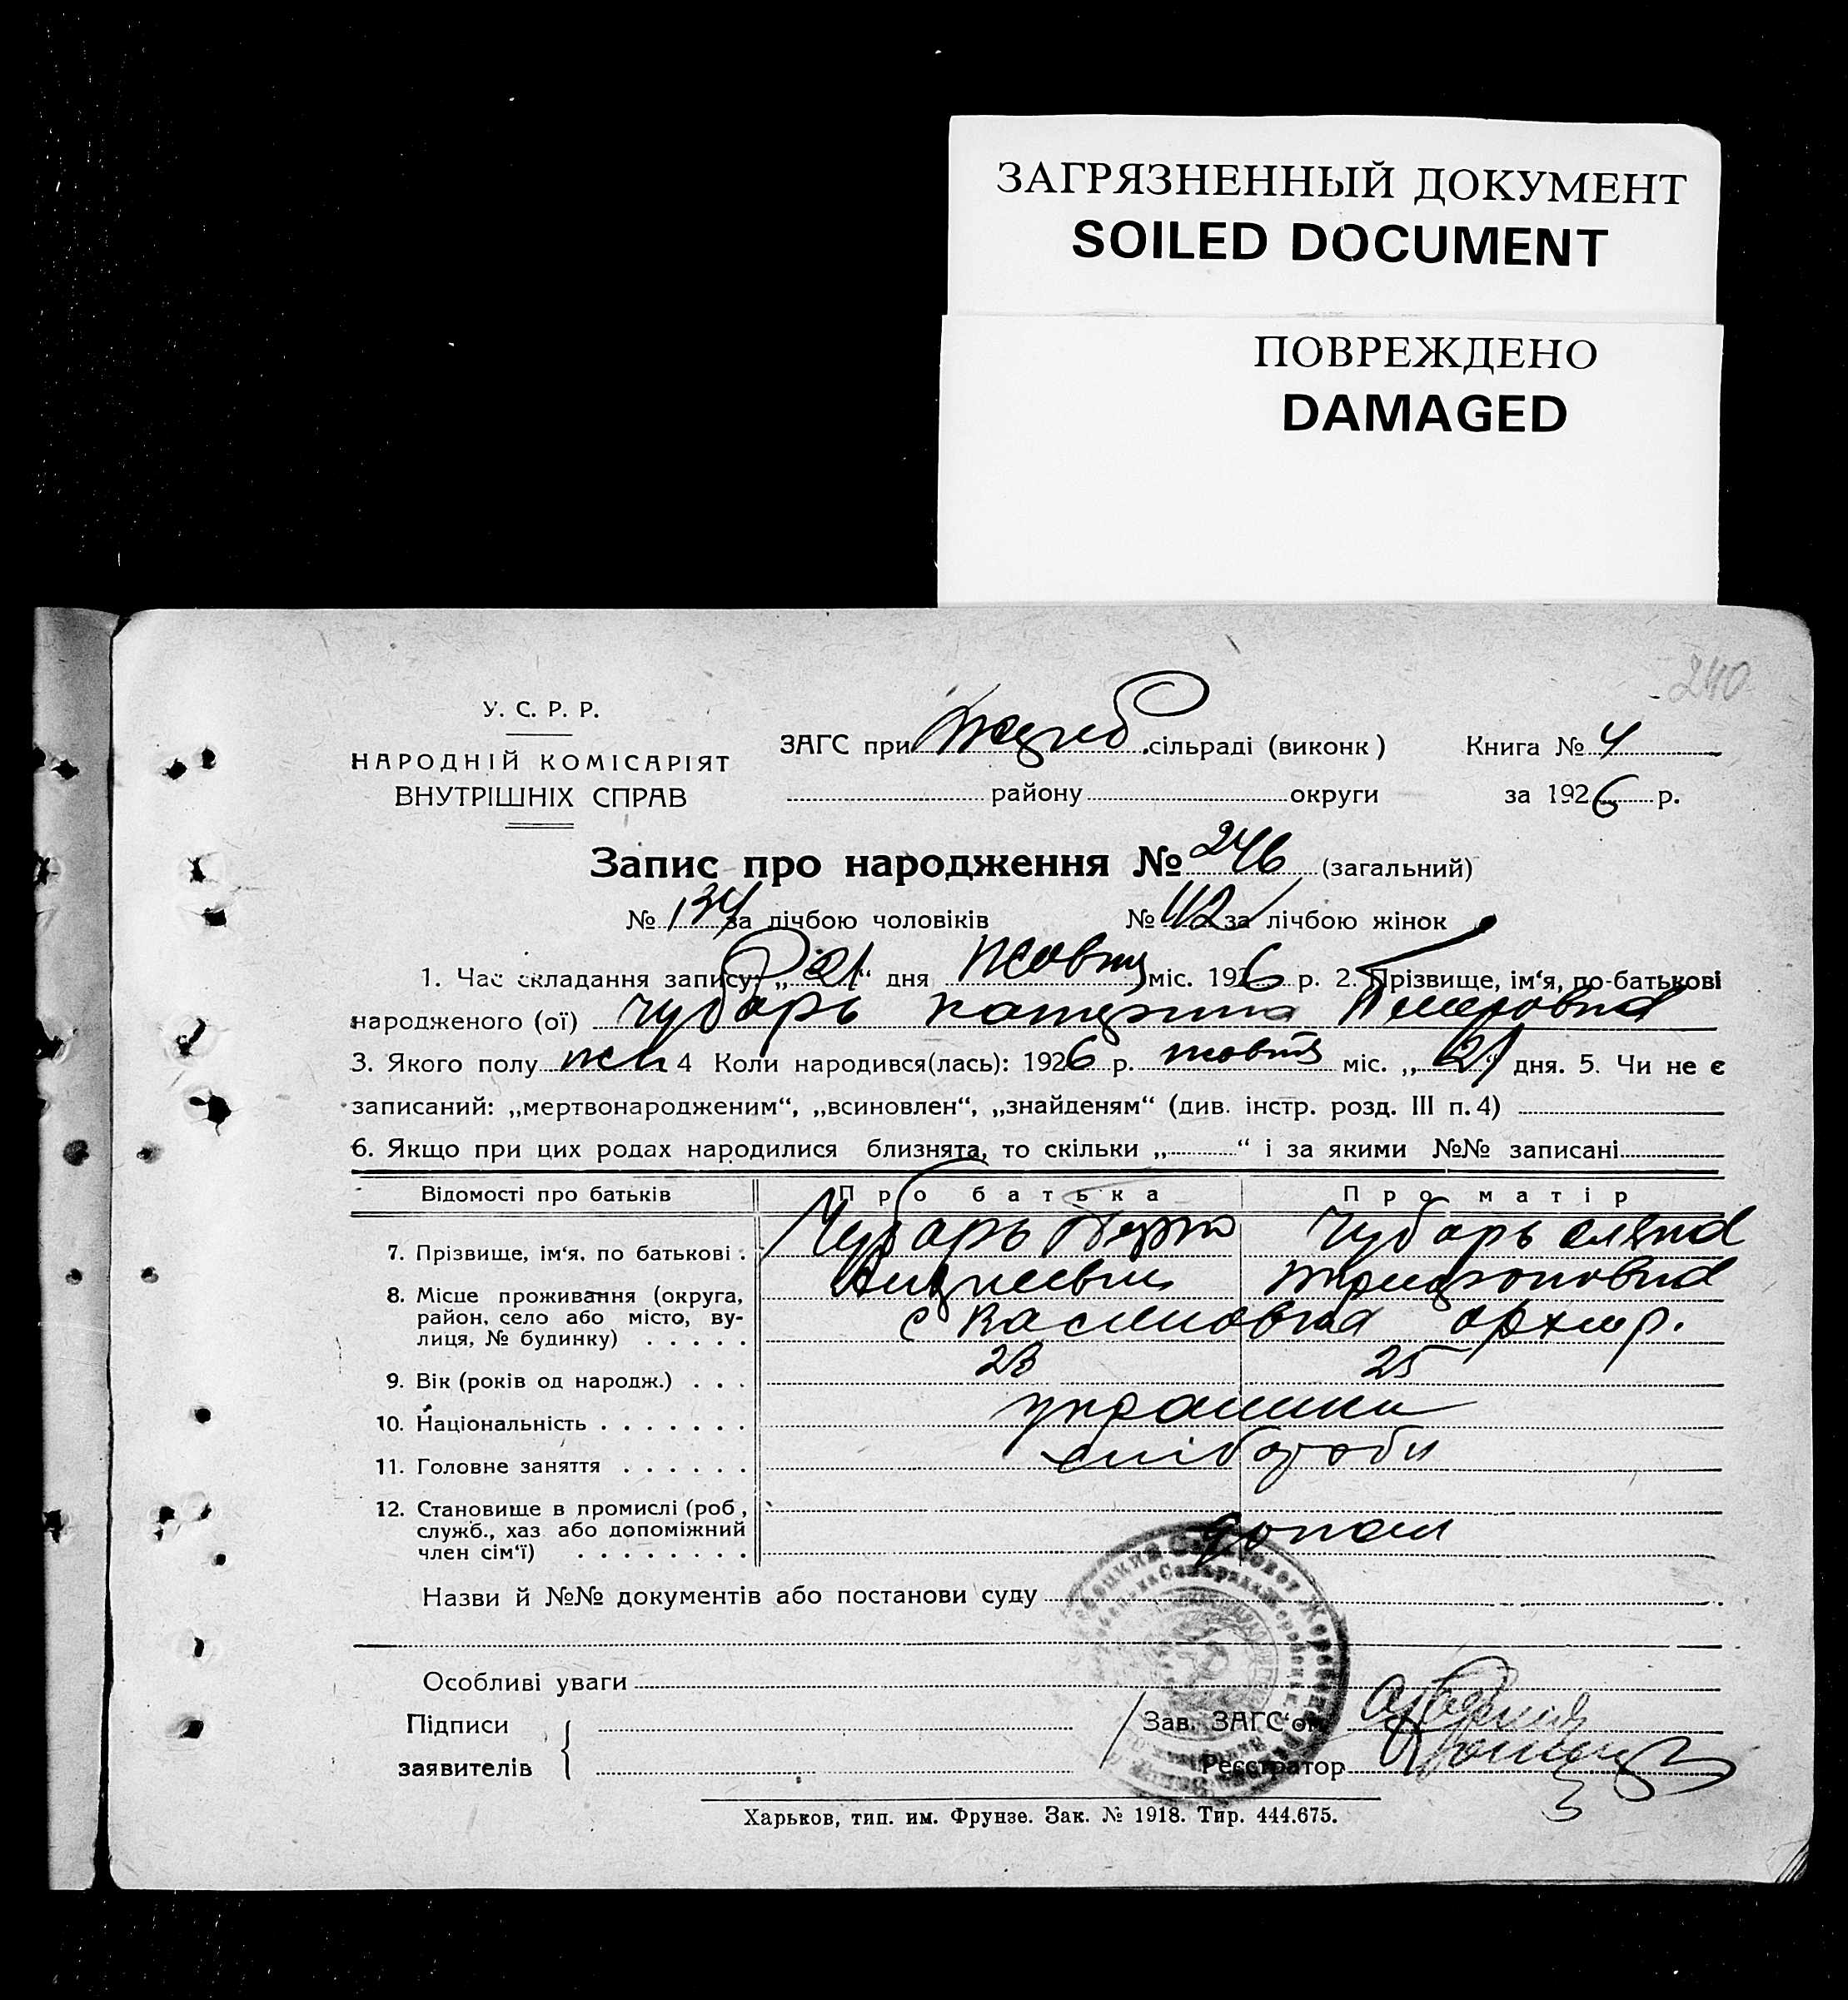 ЗАГРЯЗНЕННЫЙ ДОКУМЕНТ
SOILED DOCUMENT
ПОВРЕЖДЕНО
DAMAGED
240
У. С. Р. Р.
НАРОДНІЙ КОМІСАРІЯТ
ВНУТРІШНІХ СПРАВ
ЗАГС при сільраді (виконк) Книга № 4
району округи за 1926 р.
Запис про народження № 246 (загальний)
№ 134 за лічбою чоловіків № 112 за лічбою жінок
1. Час складання запису: „21“ дня Жовт міс. 1926 р. 2. Прізвище, ім‘я, по-батькові
народженого (ої) Чубарь Катерина Петровна
3. Якого полу жін 4 Коли народився(лась): 1926 р. жовтя міс. „21“ дня. 5. Чи не є
записаний: „мертвонародженим“, „всиновлен“, „знайденям“ (див. інстр. розд. III п. 4)
6. Якщо при цих родах народилися близнята, то скільки „ “ і за якими №№ записані
Відомості про батьків Про батька Про матір
7. Прізвище, ім‘я, по батькові Чубарь Петро Чубарь
8. Місце проживання (округа,
район, село або місто, ву-
лиця, № будинку) с
9. Вік (років од народж.) 23 25
10. Національність українки
11. Головне заняття хлібороби
12. Становище в промислі (роб,
служб., хаз або допоміжний
член сім‘ї)
Назви й №№ документів або постанови суду
Особливі уваги
Підписи
заявителів
Зав. ЗАГС‘ом
Реєстратор
Харьков, тип. им. Фрунзе. Зак. № 1918. Тир. 444.675.